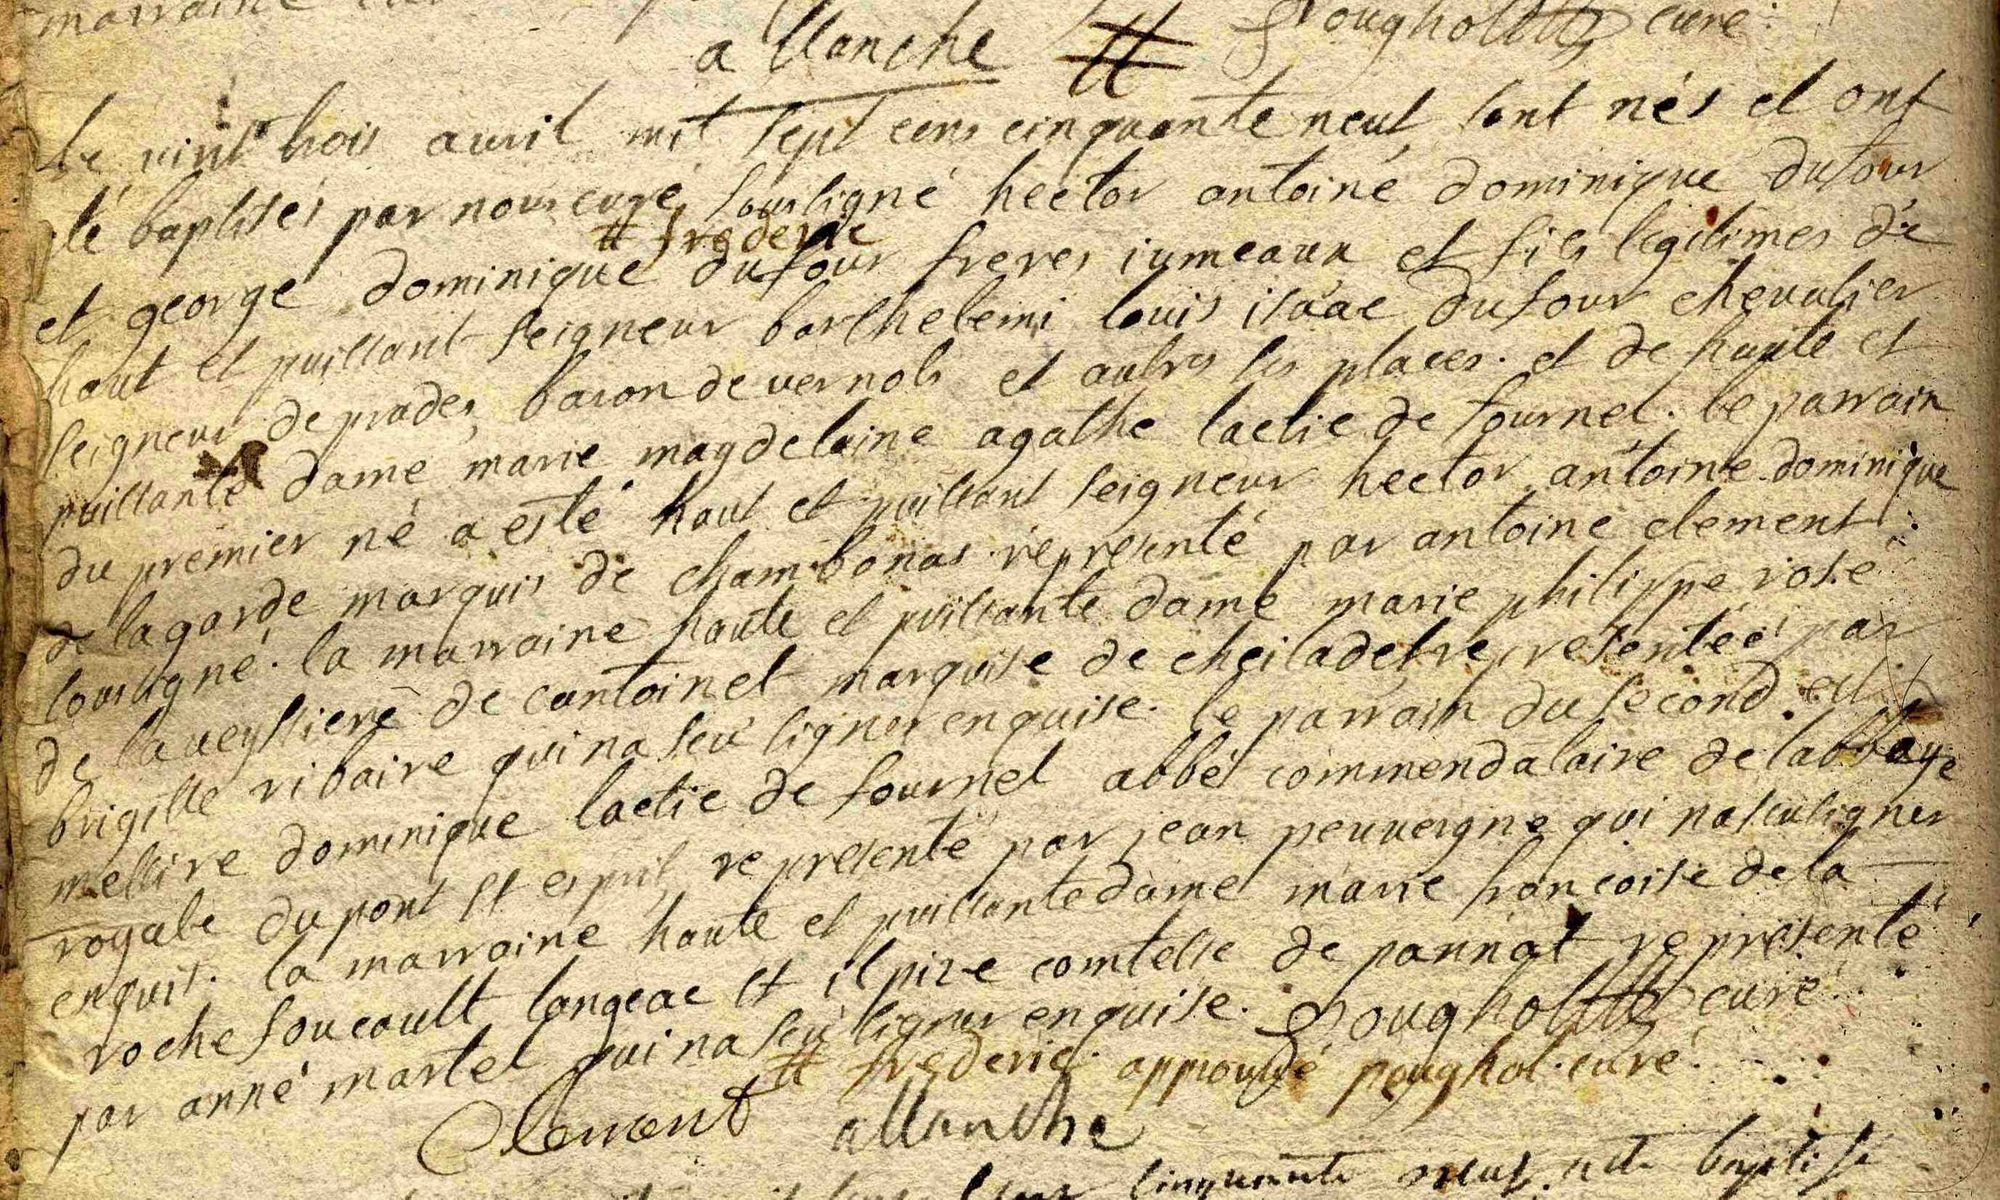 marraine
a allanche # Poughol curé
Le vint trois avril mil sept cens cinquante neuf sont nés et ont
eté baptisés par nous curé soussigné hector antoine dominique dufour
# frederic
et george dominique dufour freres iumeaux et fils legitimes de
haut et puissant seigneur barthelemi louis isaac dufour chevalier
seigneur de prades, baron de vernols et autres ses places. et de haute et
puissante dame marie magdelaine agathe lastic de fournel. le parrain
du premier né a esté haut et puissant seigneur hector antoine dominique
de lagarde marquis de chambonas representé par antoine clement
soussigné. la marraine haute et puissante dame marie philippe rose
de la veyssiere de cantoinet marquise de cheiladet representée par
brigitte ribaire qui na sceu signer enquise. le parrain du second est
messire dominique lastic de fournel abbé commendataire de labbaye
royale du pont st esprit representé par jean peuvergne qui na sceu signer
enquis. la marraine haute et puissante dame marie francoise de la
rochefoucault langeac et comtesse de pannat representé
par anne martel qui na sceu signer enquise. Poughol curé
# frederic approuvé poughol curé
Clement allanche
cinquante neuf a eté baptisé